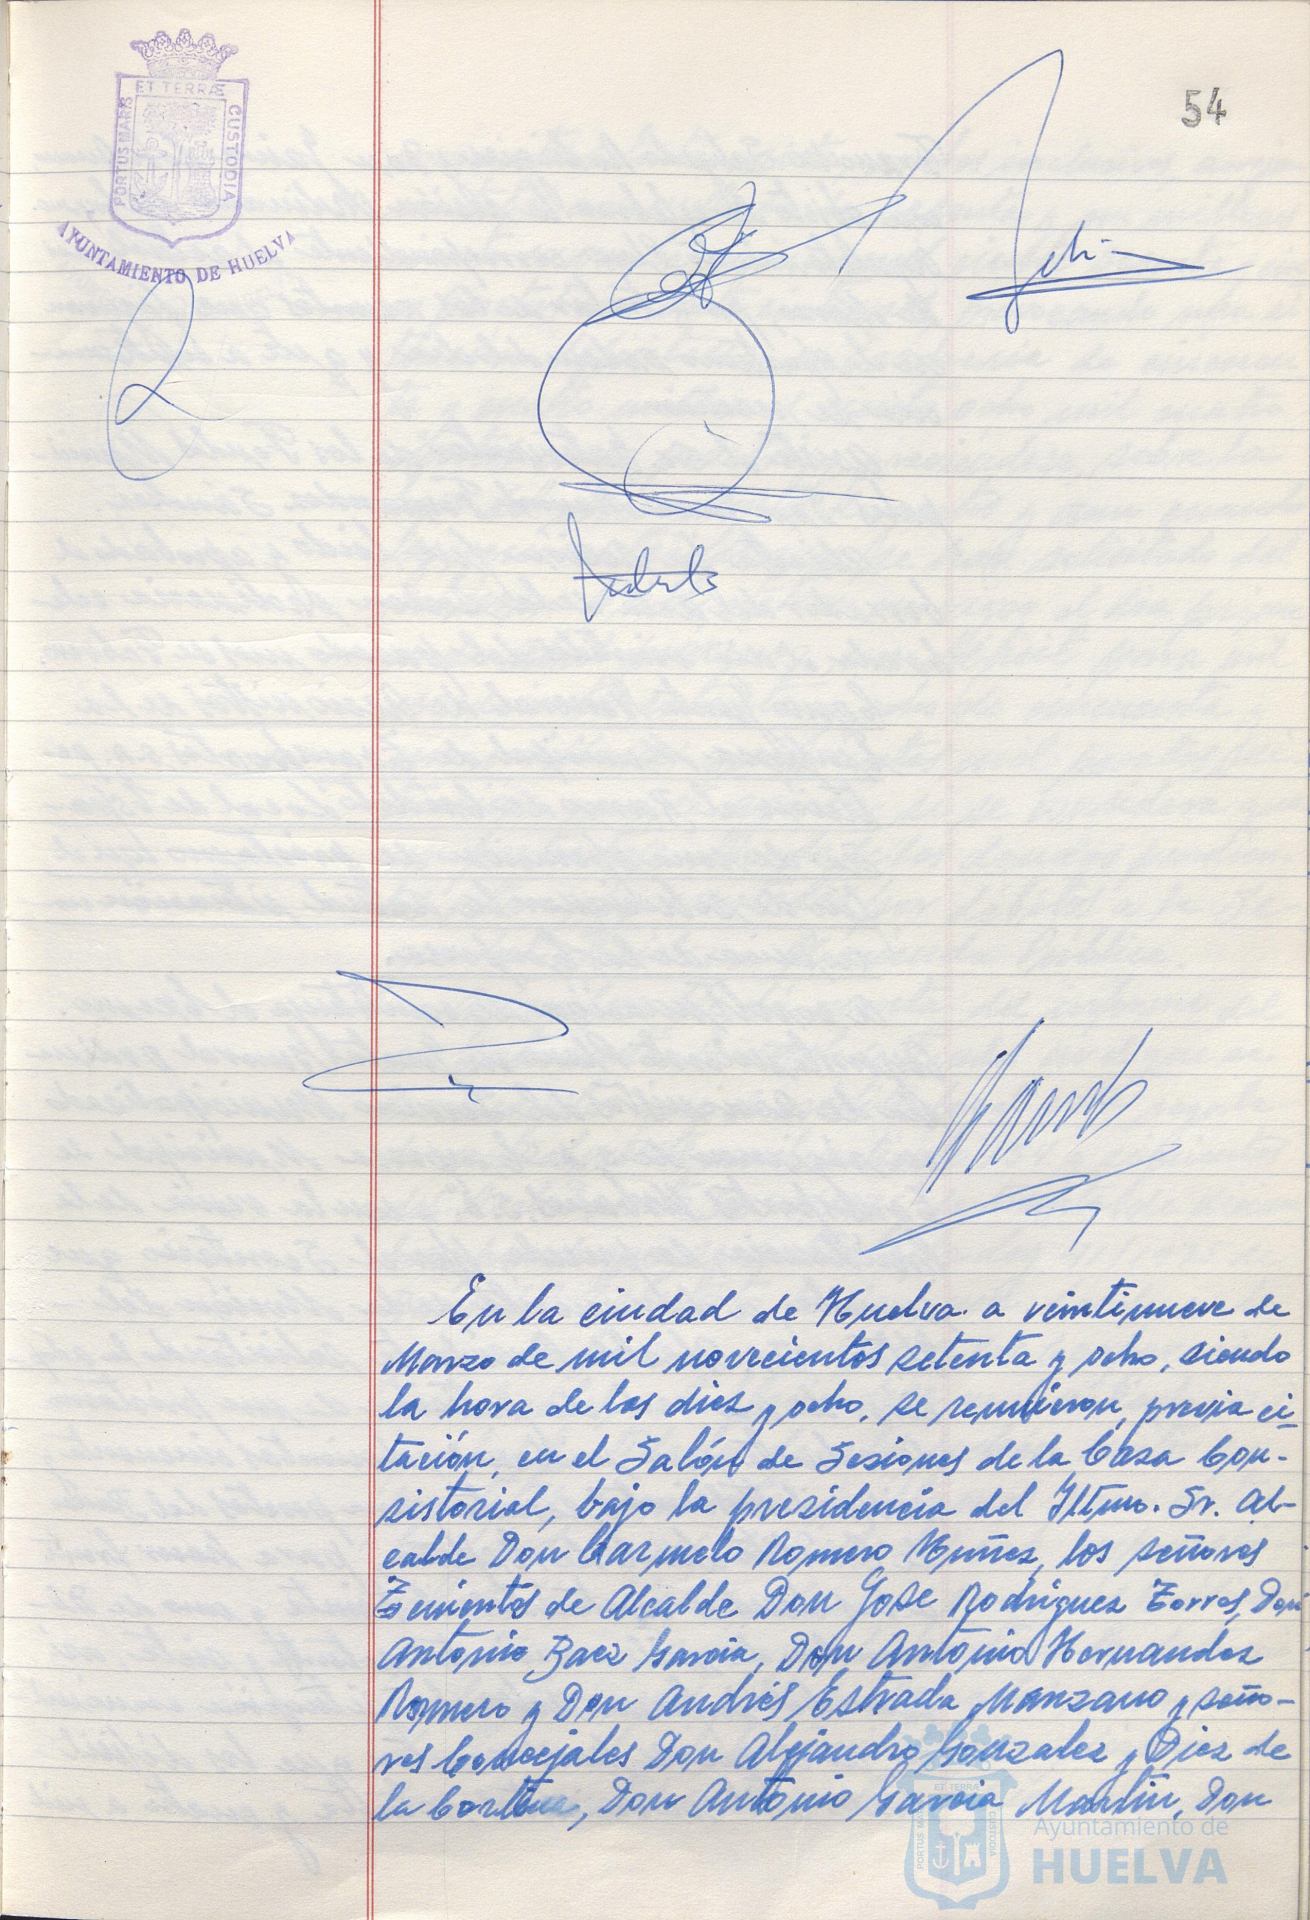 54
PORTUS MARIS
ET TERRÆ
CUSTODIA
AYUNTAMIENTO DE HUELVA
En la ciudad de Huelva a veintinueve de
Marzo de mil novecientos setenta y ocho, siendo
la hora de las diez y ocho, se reunieron, previa ci-
tación, en el Salón de Sesiones de la Casa Con-
sistorial, bajo la presidencia del Iltmo. Sr. Al-
calde Don Carmelo Romero Muñez, los señores
Tenientes de Alcalde Don José Rodríguez Torres, Don
Antonio Baez Garcia, Don Antonio Hernandez
Romero y Don Andrés Estrada Manzano y seño-
res Concejales Don Alejandro Gonzalez y Diez de
la Cortina, Don Antonio Garcia Martin, Don
PORTUS MARIS
ET TERRÆ
CUSTODIA
Ayuntamiento de
HUELVA